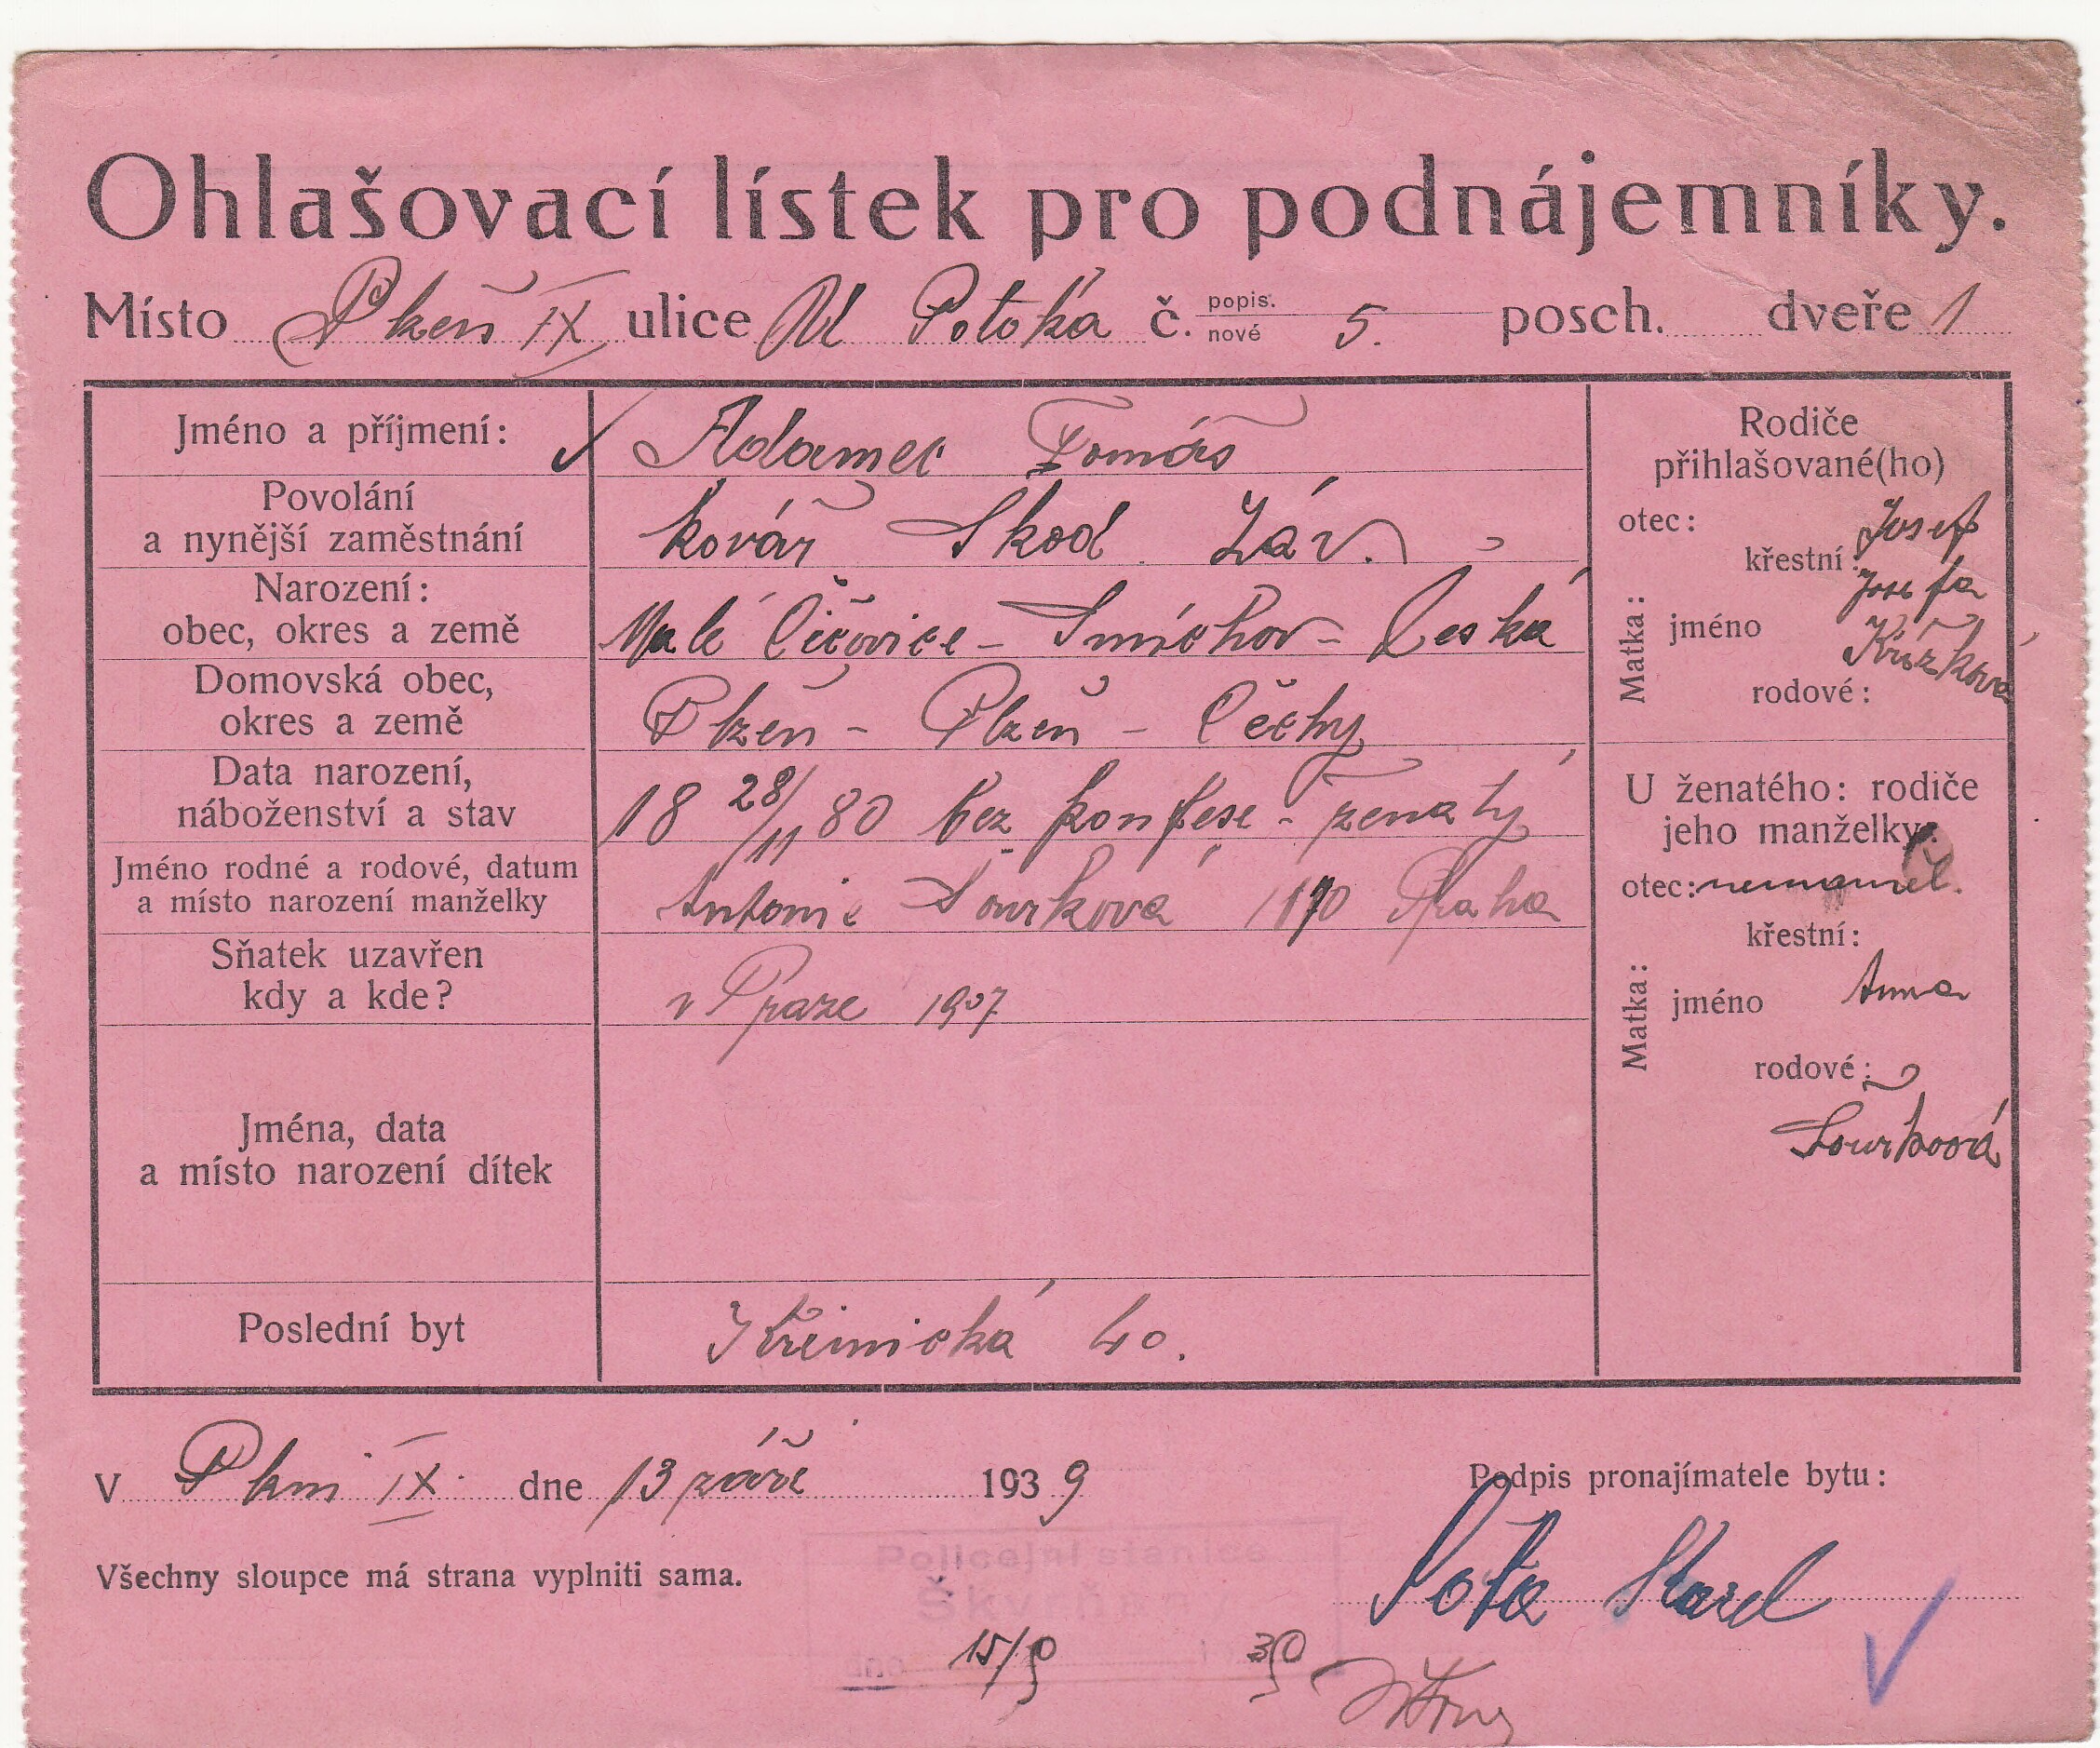 Ohlašovací lístek pro podnájemníky.
Místo Plzeň IX ulice U Potoka č. popis. nové 5. posch. dveře 1
Jméno a příjmení: Adamec Tomáš
Povolání
a nynější zaměstnání
kovář Škod Záv.
Narození:
obec, okres a země
Malé Číčovice - Smíchov - Česká
Domovská obec,
okres a země
Plzeň - Plzeň - Čechy
Data narození,
náboženství a stav
18 28/11 80 bez konfese - ženatý
Jméno rodné a rodové, datum
a místo narození manželky
Antonie Sourková Praha
Sňatek uzavřen
kdy a kde?
v Praze 1907
Jména, data
a místo narození dítek
Poslední byt
Křimická 40.
Rodiče
přihlašované(ho)
otec: Josef
křestní: Josefa
Matka:
jméno
rodové: Křížková
U ženatého: rodiče
jeho manželky:
otec: nemanžel.
křestní:
Matka:
jméno Anna
rodové:
Sourková
V Plzni IX. dne 13 září 1939
Podpis pronajímatele bytu:
Všechny sloupce má strana vyplniti sama.
Policejní stanice
dne 15/9 39